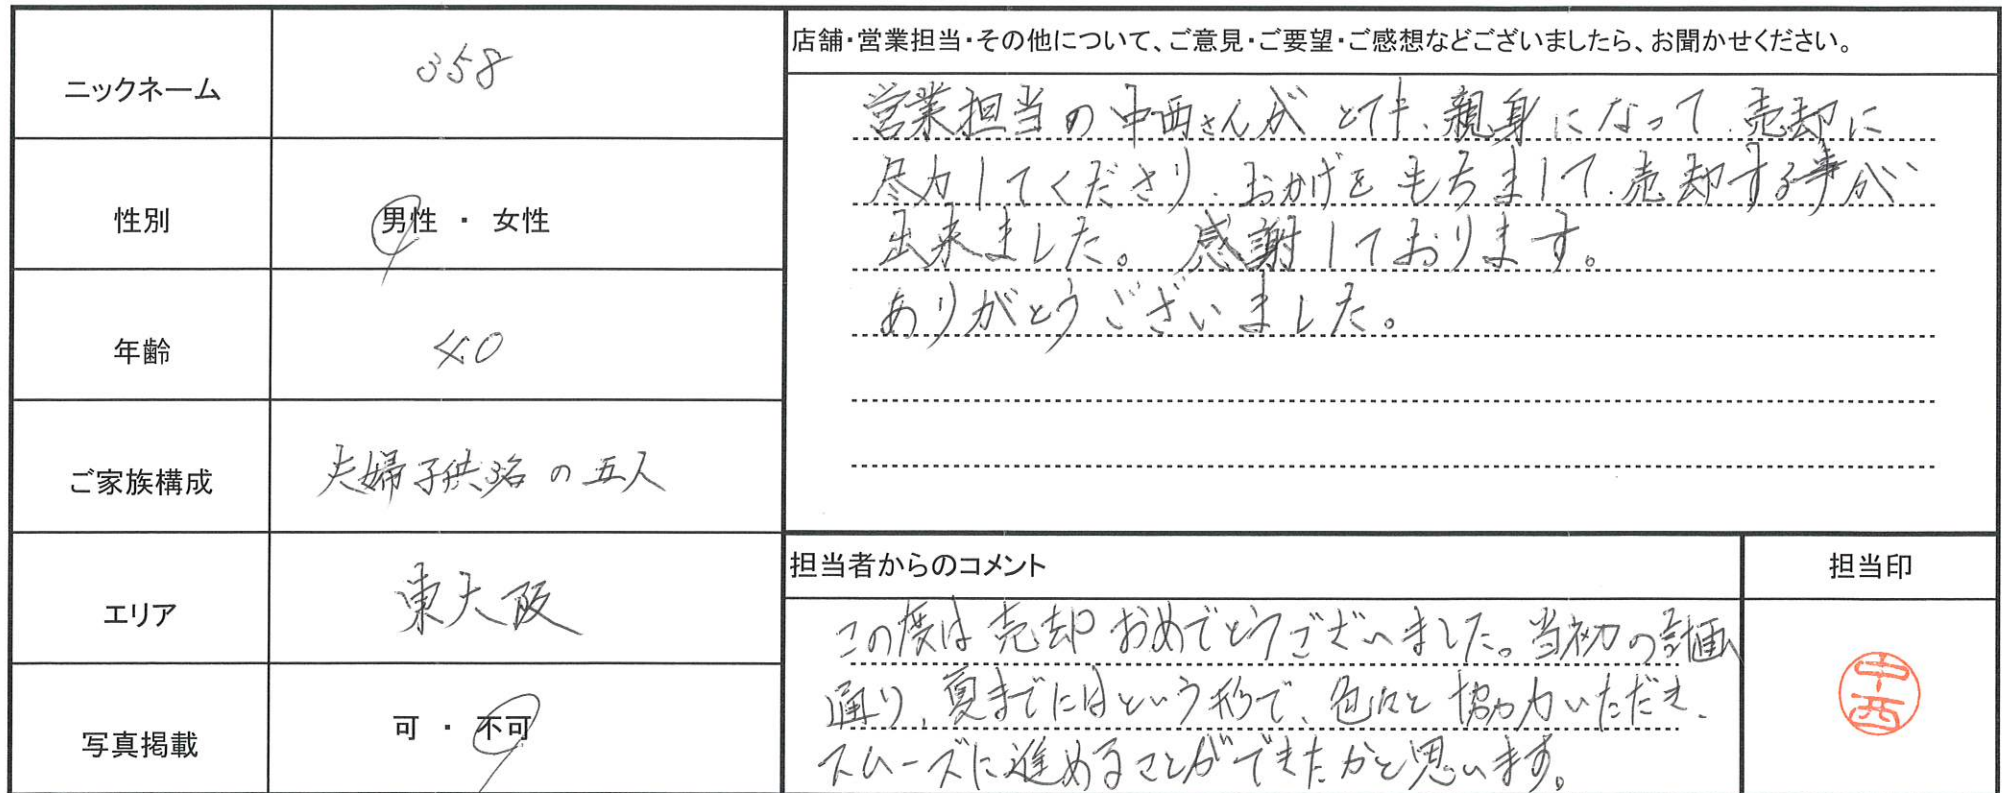 ニックネーム
358
性別
男性 ・ 女性
年齢
40
ご家族構成
夫婦子供3名の五人
エリア
東大阪
写真掲載
可 ・ 不可
店舗・営業担当・その他について、ご意見・ご要望・ご感想などございましたら、お聞かせください。
営業担当の中西さんがとても、親身になって、売却に
尽力してくださり、おかげをもちまして、売却する事が
出来ました。感謝しております。
ありがとうございました。
担当者からのコメント
この度は売却おめでとうございました。当初の計画
通り、夏までにはという形で、色々と協力いただき、
スムーズに進めることができたかと思います。
担当印
中西